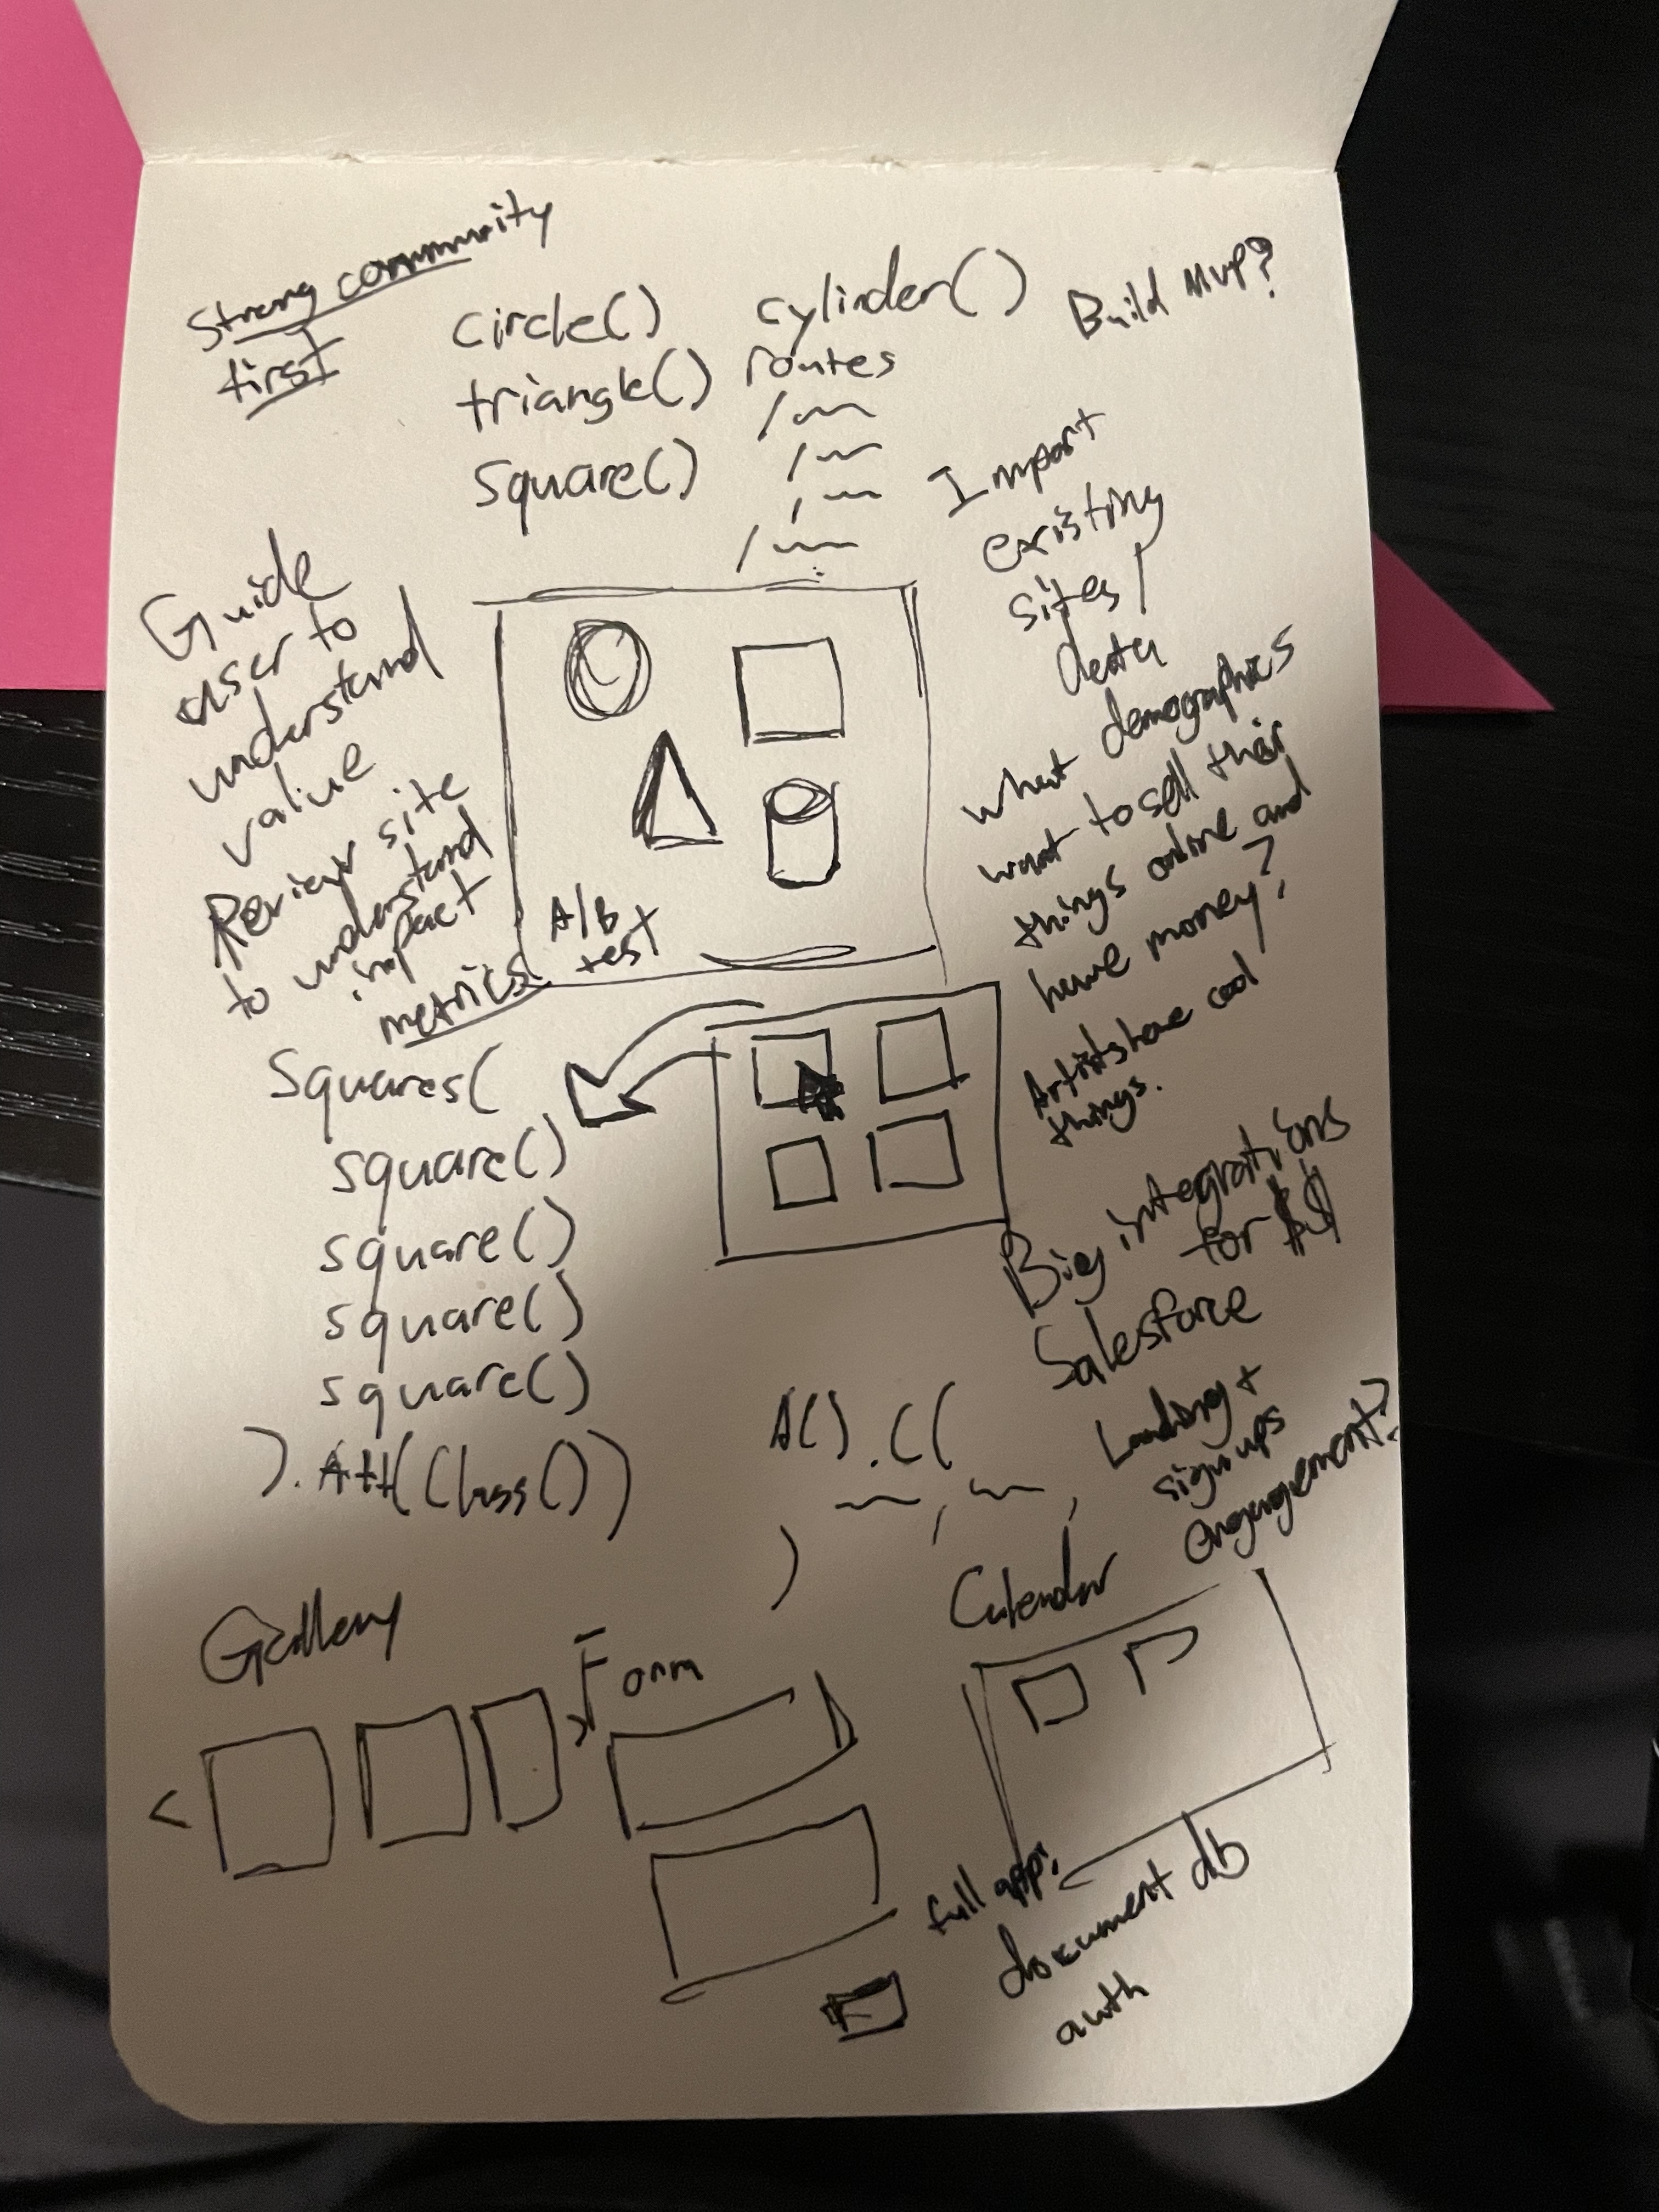 Strong community
first
circle()
triangle()
square()
cylinder()
routes
Build MVP?
Import
existing
sites/
data
Guide
user to
understand
value
Review site
to understand
impact
metrics
A/B
test
what demographics
want to sell their
things online and
have money?
Artists have cool
things.
Squares(
square()
square()
square()
square()
).Att(Class())
Big integrations
for $$
Salesforce
A().C(
, ,
)
Landing +
signups
engagement?
Gallery
< >
Form
Calendar
full app:
document db
auth